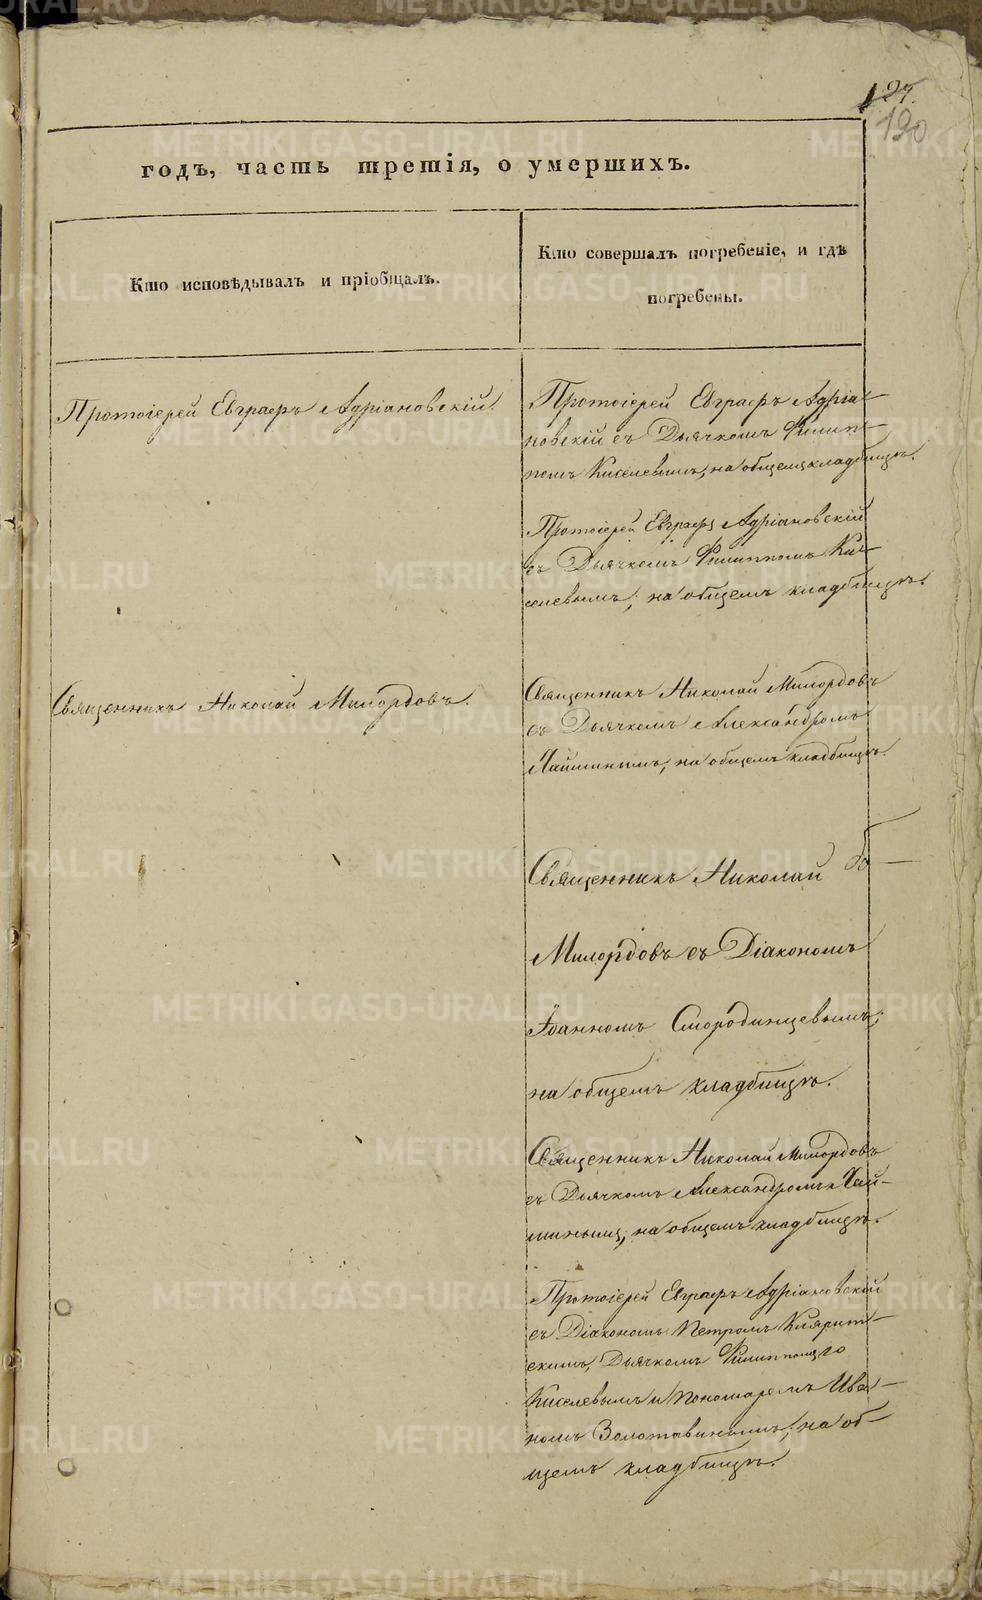 127.
120
годъ, часть третія, о умершихъ.
Кто исповѣдывалъ и пріобщалъ.
Кто совершалъ погребеніе, и гдѣ
погребены.
Протоіерей Евграфъ Адріановскій.
Протоіерей Евграфъ Адріа-
новскій съ Дьячкомъ Филип-
помъ Киселевымъ, на общемъ кладбищѣ.
Протоіерей Евграфъ Адріановскій
съ Дьячкомъ Филиппомъ Ки-
селевымъ, на общемъ кладбищѣ.
Священникъ Николай Милордовъ.
Священникъ Николай Милордовъ
съ Дьячкомъ Александромъ
на общемъ кладбищѣ.
Священникъ Николай
Милордовъ съ Діакономъ
Іоанномъ Смородинцевымъ,
на общемъ кладбищѣ.
Священникъ Николай Милордовъ
съ Дьячкомъ Александромъ
на общемъ кладбищѣ.
Протоіерей Евграфъ Адріановскій
съ Діакономъ Петромъ Клярит-
скимъ, Дьячкомъ Филиппомъ
Киселевымъ и Пономаремъ Ива-
номъ Золотавинымъ, на об-
щемъ кладбищѣ.
METRIKI.GASO-URAL.RU